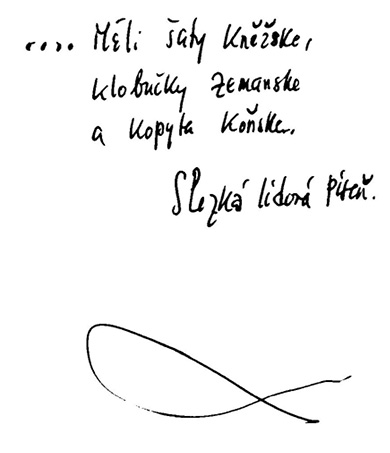 .... Měli šaty kněžske,
klobučky zemanske
a kopyta koňske.
Slezká lidová píseň.